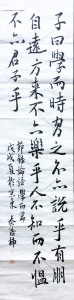 子曰學而時習之不亦說乎有朋
自遠方來不亦樂乎人不知而不慍
不亦君子乎
節錄論語學而
戊戌